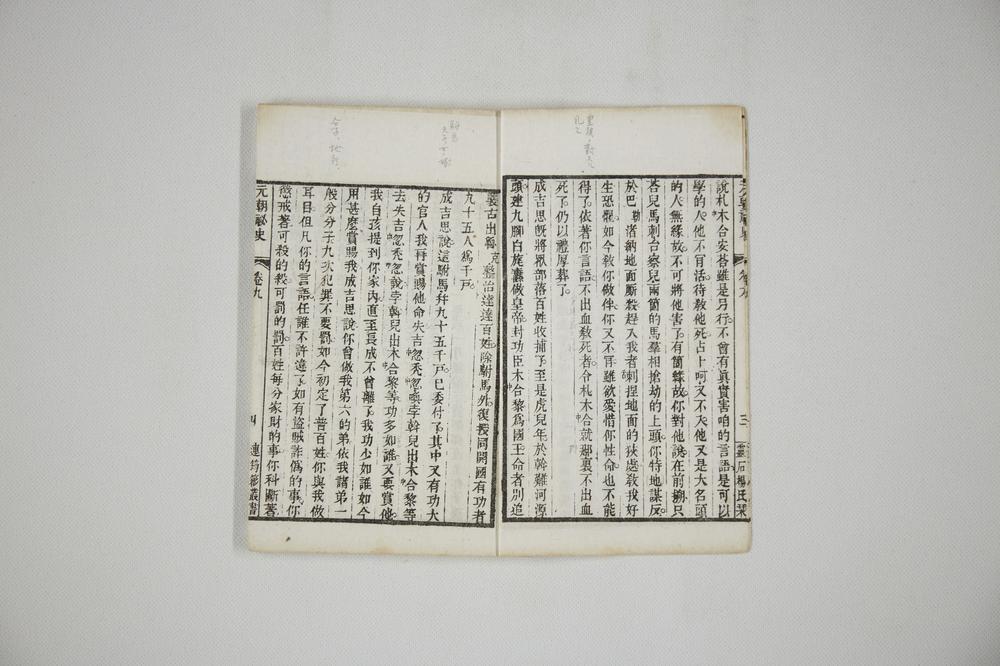 說札木合安荅雖是另行不曾有眞實害咱的言語是可以
學的人他不肯活待敎他死占卜呵又不入他又是大名頭
的人無緣故不可將他害了有箇緣故你對他說在前搠只
荅兒馬刺台察兒兩箇的馬羣相搶劫的上頭你特地謀反
於巴勒渚納地面厮殺趕入我者刺捏地面的狹處敎我好
生恐懼如今敎你做伴你又不肯雖欲愛惜你性命也不能
得了依著你言語不出血敎死者令札木合就那裏不出血
死了仍以禮厚葬了
成吉思旣將衆部落百姓收捕了至是虎兒年於斡難河源
頭建九腳白旄纛做皇帝封功臣木合黎爲國王命者別追
襲古出魯克整治達達百姓除駙馬外復授同開國有功者
九十五人爲千戸
成吉思說這駙馬幷九十五千戸已委付了其中又有功大
的官人我再賞賜他命失吉忽禿忽喚孛斡兒出木合黎等
去失吉忽禿忽說孛斡兒出木合黎等功多如誰又要賞他
我自孩提到你家內直至長成不曾離了我功少如誰如今
用甚麽賞賜我成吉思說你曾做我第六的弟依我諸弟一
般分分子九次犯罪不要罰如今初定了普百姓你與我做
耳目但凡你的言語任誰不許違了如有盜賊詐僞的事你
懲戒著可殺的殺可罰的罰百姓每分家財的事你科斷著
元朝祕史
卷九
四
連筠簃叢書